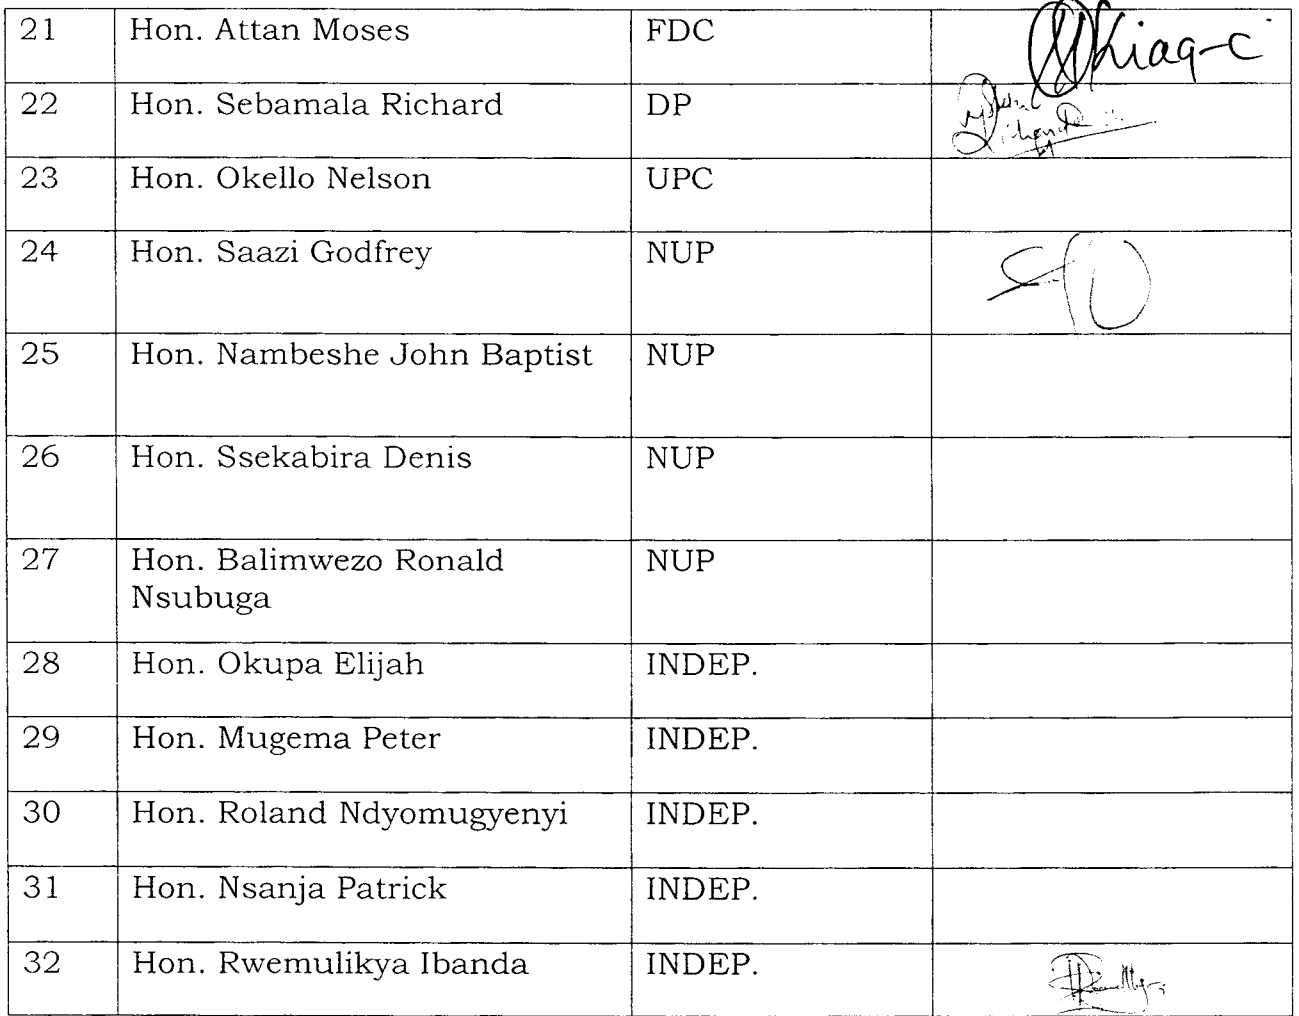 21 Hon. Attan Moses FDC
22 Hon. Sebamala Richard DP
23 Hon. Okello Nelson UPC
24 Hon. Saazi Godfrey NUP
25 Hon. Nambeshe John Baptist NUP
26 Hon. Ssekabira Denis NUP
27 Hon. Balimwezo Ronald NUP
Nsubuga
28 Hon. Okupa Elijah INDEP.
29 Hon. Mugema Peter INDEP.
30 Hon. Roland Ndyomugyenyi INDEP.
31 Hon. Nsanja Patrick INDEP.
32 Hon. Rwemulikya Ibanda INDEP.